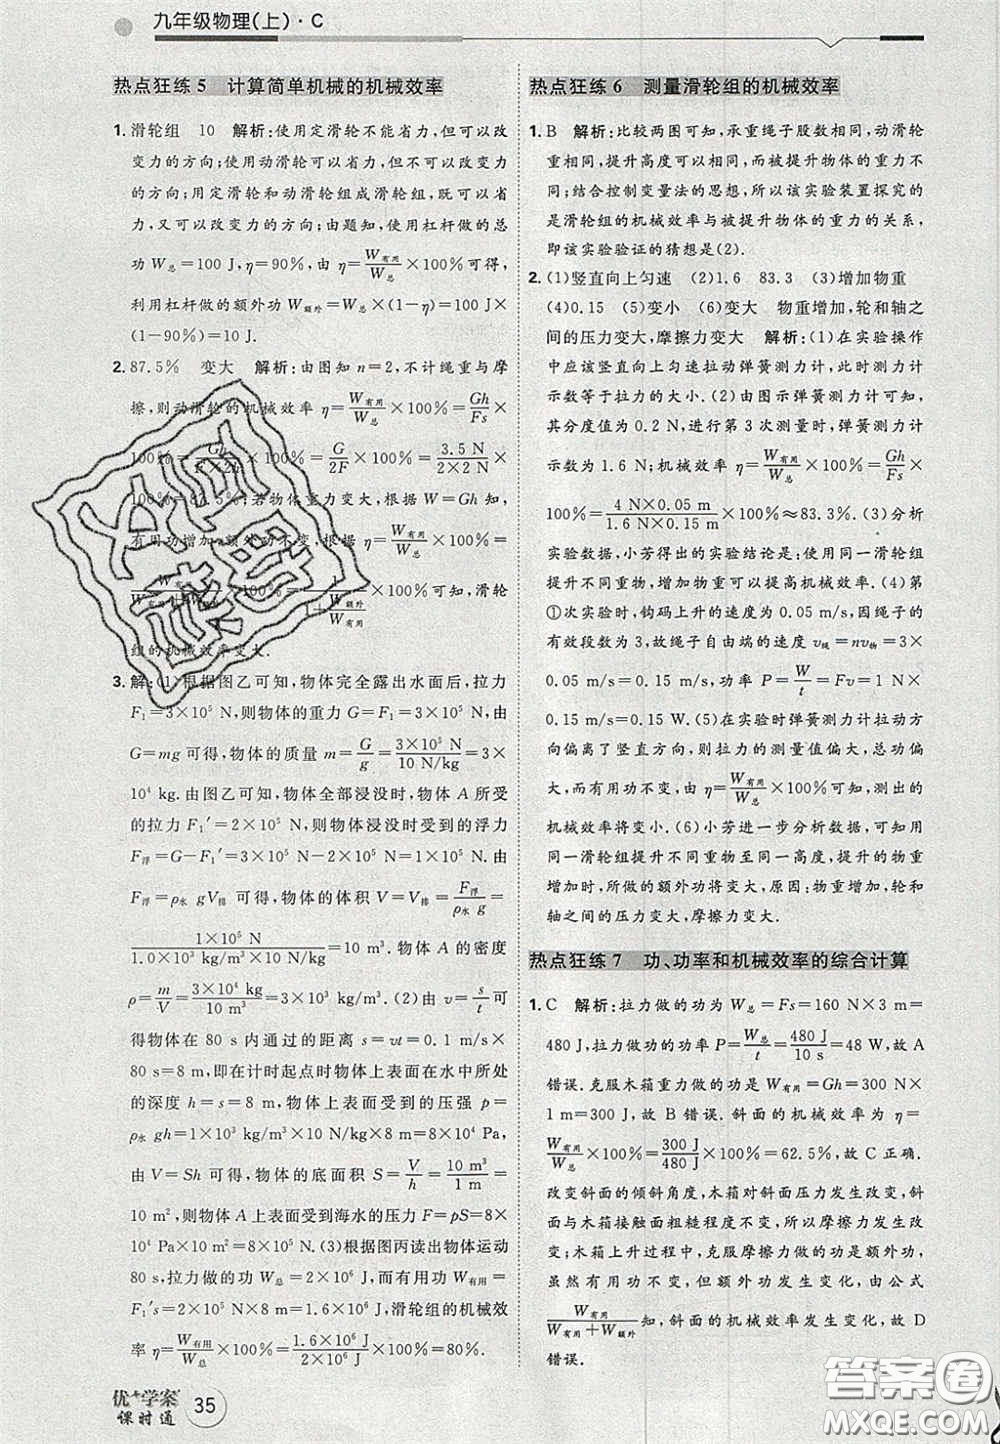 九年级物理(上)·C
热点狂练5 计算简单机械的机械效率
1. 滑轮组 10 解析:使用定滑轮不能省力,但可以改
变力的方向;使用动滑轮可以省力,但不可以改变力
的方向;用定滑轮和动滑轮组成滑轮组,既可以省
力,又可以改变力的方向;由题知,使用杠杆做的总
功W总=100 J,η=90%,由 η=W有用/W总×100%可得,
利用杠杆做的额外功W额外=W总×(1-η)=100 J×
(1-90%)=10 J.
2. 87.5% 变大 解析:由图知n=2,不计绳重与摩
擦,则动滑轮的机械效率 η=W有用/W总×100%=Gh/Fs×
100%=Gh/(F×2h)×100%=G/2F×100%=3.5 N/(2×2 N)×
100%=87.5%;若物体重力变大,根据W=Gh知,
有用功增大,额外功不变,根据 η=W有用/W总×100%=
×100%=×100%可知,滑轮
组的机械效率变大.
3. 解:(1)根据图乙可知,物体完全露出水面后,拉力
F₁=3×10⁵ N,则物体的重力G=F₁=3×10⁵ N,由
G=mg可得,物体的质量 m=G/g=(3×10⁵ N)/(10 N/kg)=3×
10⁴ kg.由图乙可知,物体全部浸没时,物体A所受
的拉力F₁′=2×10⁵ N,则物体浸没时受到的浮力
F浮=G-F₁′=3×10⁵ N-2×10⁵ N=1×10⁵ N.由
F浮=ρ水 gV排 可得,物体的体积 V=V排=F浮/(ρ水 g)=
(1×10⁵ N)/(1.0×10³ kg/m³×10 N/kg)=10 m³.物体A的密度
ρ=m/V=(3×10⁴ kg)/(10 m³)=3×10³ kg/m³.(2)由 v=s/t可
得物体在80 s内通过的距离s=vt=0.1 m/s×
80 s=8 m,即在计时起点时物体上表面在水中所处
的深度h=s=8 m,物体上表面受到的压强 p=
ρ水 gh=1×10³ kg/m³×10 N/kg×8 m=8×10⁴ Pa,
由V=Sh可得,物体的底面积 S=V/h=10 m³/1 m=
10 m²,故物体A上表面受到海水的压力F=pS=8×
10⁴ Pa×10 m²=8×10⁵ N.(3)根据图丙读出物体运动
80 s,拉力做的功W总=2×10⁶ J,而有用功W有用=
F₁′s=2×10⁵ N×8 m=1.6×10⁶ J,滑轮组的机械效
率 η=W有用/W总×100%=(1.6×10⁶ J)/(2×10⁶ J)×100%=80%.
热点狂练6 测量滑轮组的机械效率
1. B 解析:比较两图可知,承重绳子股数相同,动滑轮
重相同,提升高度可以相同,而被提升物体的重力不
同;结合控制变量法的思想,所以该实验装置探究的
是滑轮组的机械效率与被提升物体的重力的关系,
即该实验验证的猜想是(2).
2. (1)竖直向上匀速 (2)1.6 83.3 (3)增加物重
(4)0.15 (5)变小 (6)变大 物重增加,轮和轴之
间的压力变大,摩擦力变大 解析:(1)在实验操作
中应该竖直向上匀速拉动弹簧测力计,此时测力计
示数等于拉力的大小.(2)由图示弹簧测力计可知,
其分度值为0.2 N,在第3次测量过程中,弹簧测力计
示数为1.6 N;机械效率 η=W有用/W总×100%=Gh/Fs×
100%=(4 N×0.05 m)/(1.6 N×0.15 m)×100%≈83.3%.(3)分析
实验数据,小芳得出的实验结论是:使用同一滑轮组
提升不同重物,增加物重可以提高机械效率.(4)第
①次实验时,钩码上升的速度为0.05 m/s,因绳子的
有效段数为3,故绳子自由端的速度v绳=nv物=3×
0.05 m/s=0.15 m/s,功率 P=W/t=Fv=1 N×
0.15 m/s=0.15 W.(5)在实验时弹簧测力计拉动方
向偏离了竖直方向,则拉力的测量值偏大,总功偏
大,根据 η=W有用/W总×100%可知,测出的
机械效率将变小.(6)小芳进一步分析数据,可知用
同一滑轮组提升不同重物至同一高度,提升的物重
增加时,所做的额外功将变大,原因:物重增加,轮和
轴之间的压力变大,摩擦力变大.
热点狂练7 功、功率和机械效率的综合计算
1. C 解析:拉力做的功为W总=Fs=160 N×3 m=
480 J,拉力做功的功率 P=W总/t=480 J/10 s=48 W,故A
错误.克服木箱重力做的功是W有用=Gh=300 N×
1 m=300 J,故B错误.斜面的机械效率为 η=
W有用/W总×100%=300 J/480 J×100%=62.5%,故C正确.
改变斜面的倾斜角度,木箱对斜面压力发生改变,斜
面与木箱接触面粗糙程度不变,所以摩擦力发生改
变;木箱上升过程中,克服摩擦力做的功是额外功,
虽然有用功不变,但额外功发生变化,由公式 η=
W有用/(W有用+W额外)知,斜面的机械效率发生变化,故D
错误.
优+学案
课时通
35
答案圈
MXQE.COM